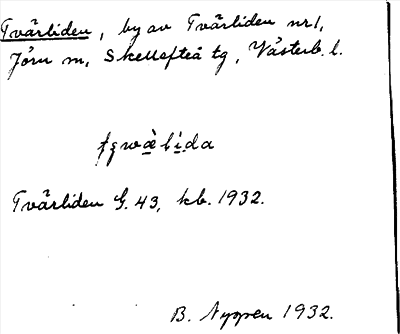 Tvärliden, by av Tvärliden nr 1,
Jörn sn, Skellefteå tg, Västerb. l.
Tvärliden G. 43, kb. 1932.
B. Nygren 1932.